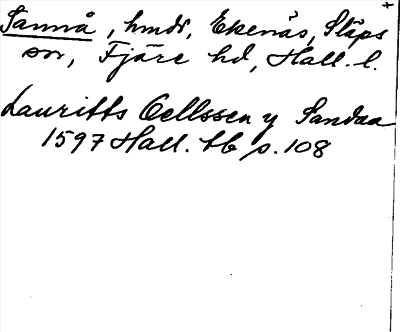 Sannå, hmdr, Ekenäs, Släps
sn, Fjäre hd, Hall. l.
Lauritts Oellssen y Sandaa
1597 Hall. tb p. 108